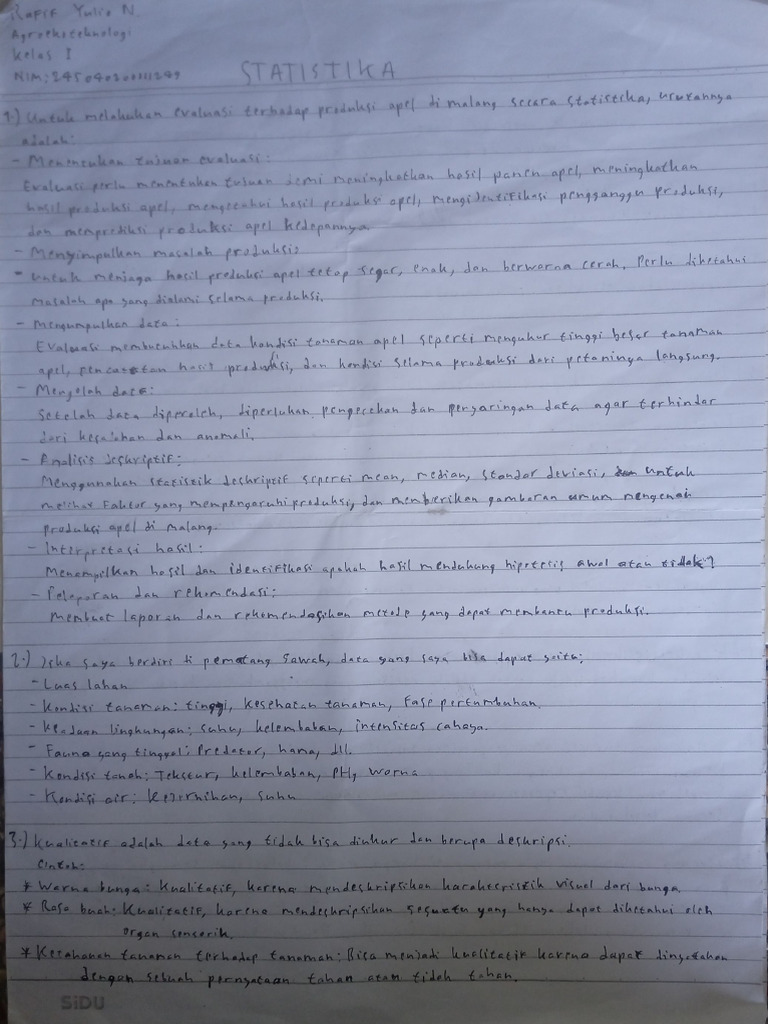 Rafif Yulio N.
Agroekoteknologi
Kelas I
NIM:
STATISTIKA
1.) Untuk melakukan evaluasi terhadap produksi apel di malang secara statistika, urutannya
adalah:
- Menentukan tujuan evaluasi:
Evaluasi perlu menentukan tujuan demi meningkatkan hasil panen apel, meningkatkan
hasil produksi apel, mengetahui hasil produksi apel, mengidentifikasi pengganggu produksi,
dan memprediksi produksi apel kedepannya.
- Menyimpulkan masalah produksi:
- Untuk menjaga hasil produksi apel tetap segar, enak, dan berwarna cerah. Perlu diketahui
masalah apa yang dialami selama produksi.
- Mengumpulkan data:
Evaluasi membutuhkan data kondisi tanaman apel seperti mengukur tinggi besar tanaman
apel, pencatatan hasil produksi, dan kondisi selama produksi dari petaninya langsung.
- Mengolah data:
Setelah data diperoleh, diperlukan pengecekan dan penyaringan data agar terhindar
dari kesalahan dan anomali.
- Analisis deskriptif:
Menggunakan statistik deskriptif seperti mean, median, standar deviasi, untuk
melihat faktor yang mempengaruhi produksi, dan memberikan gambaran umum mengenai
produksi apel di malang.
- Interpretasi hasil:
Menampilkan hasil dan identifikasi apakah hasil mendukung hipotesis awal atau tidak?
- Pelaporan dan rekomendasi:
Membuat laporan dan rekomendasikan metode yang dapat membantu produksi.
2.) Jika saya berdiri di pematang sawah, data yang saya bisa dapat yaitu:
- Luas lahan
- Kondisi tanaman: tinggi, kesehatan tanaman, fase pertumbuhan.
- Keadaan lingkungan: suhu, kelembaban, intensitas cahaya.
- Fauna yang tinggal: Predator, hama, dll.
- Kondisi tanah: Tekstur, kelembaban, PH, warna
- Kondisi air: Kejernihan, suhu
3.) Kualitatif adalah data yang tidak bisa diukur dan berupa deskripsi.
Contoh:
* Warna bunga: Kualitatif, karena mendeskripsikan karakteristik visual dari bunga.
* Rasa buah: Kualitatif, karena mendeskripsikan sesuatu yang hanya dapat diketahui oleh
organ sensorik.
* Ketahanan tanaman terhadap tanaman: Bisa menjadi kualitatif karena dapat dinyatakan
dengan sebuah pernyataan tahan atau tidak tahan.
SiDU